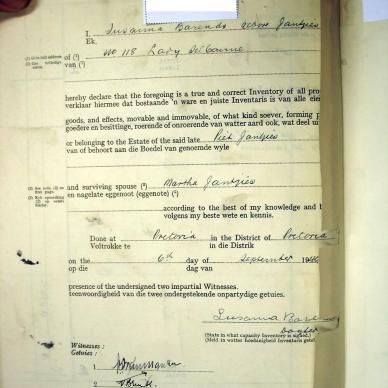 I, Susanna Barends gebore Jantjies
Ek,
(1) Give full address of (1) No 118 Lady Selborne
van (1)
hereby declare that the foregoing is a true and correct Inventory of all pro
verklaar hiermee dat bostaande 'n ware en juiste Inventaris is van alle eie
goods, and effects, movable and immovable, of what kind soever, forming p
goedere en besittings, roerende of onroerende van watter aard ook, wat deel ui
or belonging to the Estate of the said late Piet Jantjies
van of behoort aan die Boedel van genoemde wyle
and surviving spouse (2) Martha Jantjies
en nagelate eggenoot (eggenote) (2)
according to the best of my knowledge and b
volgens my beste wete en kennis.
Done at Pretoria in the District of Pretoria
Voltrokke te in die Distrik
on the 6th day of September
op die dag van
presence of the undersigned two impartial Witnesses.
teenwoordigheid van die twee ondergetekende onpartydige getuies.
Susanna Bare
(State in what capacity Inventory is signed.)
(Meld in watter hoedanigheid Inventaris gete
Witnesses :
Getuies :
1
2